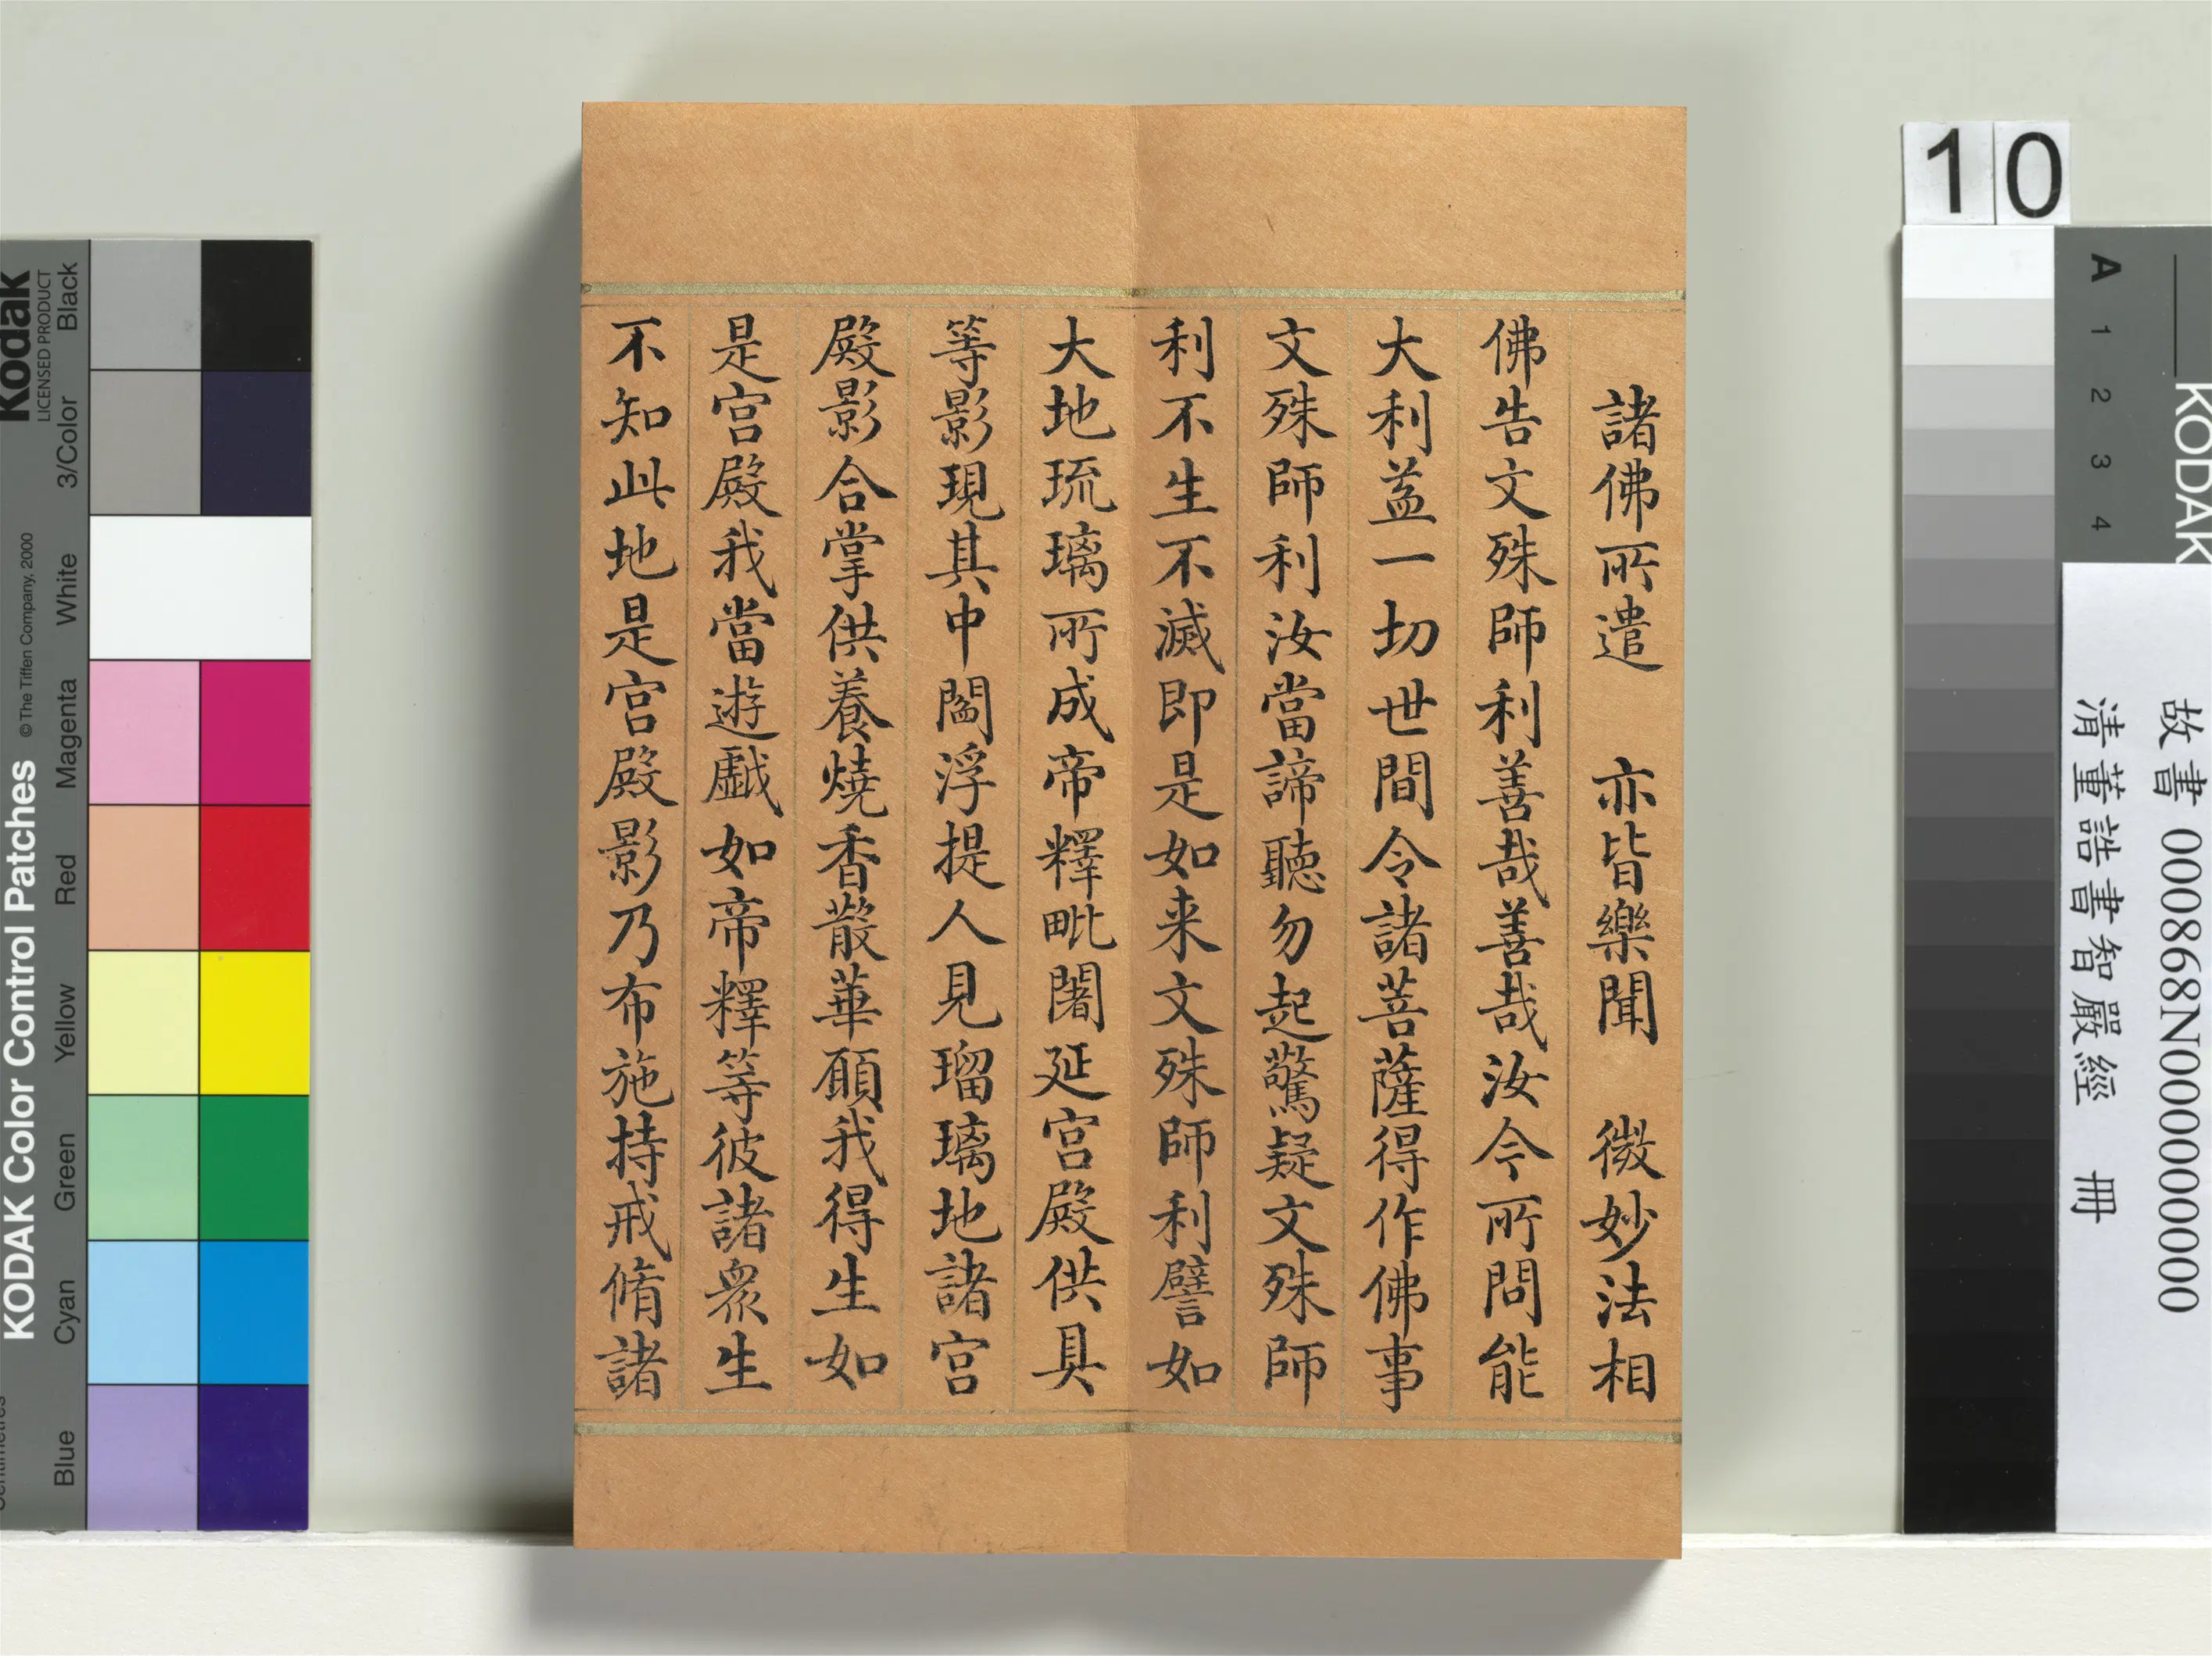 諸佛所遣　亦皆樂聞　微妙法相
佛告文殊師利善哉善哉汝今所問能
大利益一切世間令諸菩薩得作佛事
文殊師利汝當諦聽勿起驚疑文殊師
利不生不滅即是如来文殊師利譬如
大地琉璃所成帝釋毗闍延宫殿供具
等影現其中閻浮提人見瑠璃地諸宫
殿影合掌供養燒香散華願我得生如
是宫殿我當遊戲如帝釋等彼諸眾生
不知此地是宫殿影乃布施持戒脩諸
10
A 1 2 3 4
KODAK
故書 000868N000000000
清董誥書智嚴經 冊
Kodak
LICENSED PRODUCT
Black
3/Color
White
Magenta
Red
Yellow
Green
Cyan
Blue
KODAK Color Control Patches
©The Tiffen Company, 2000